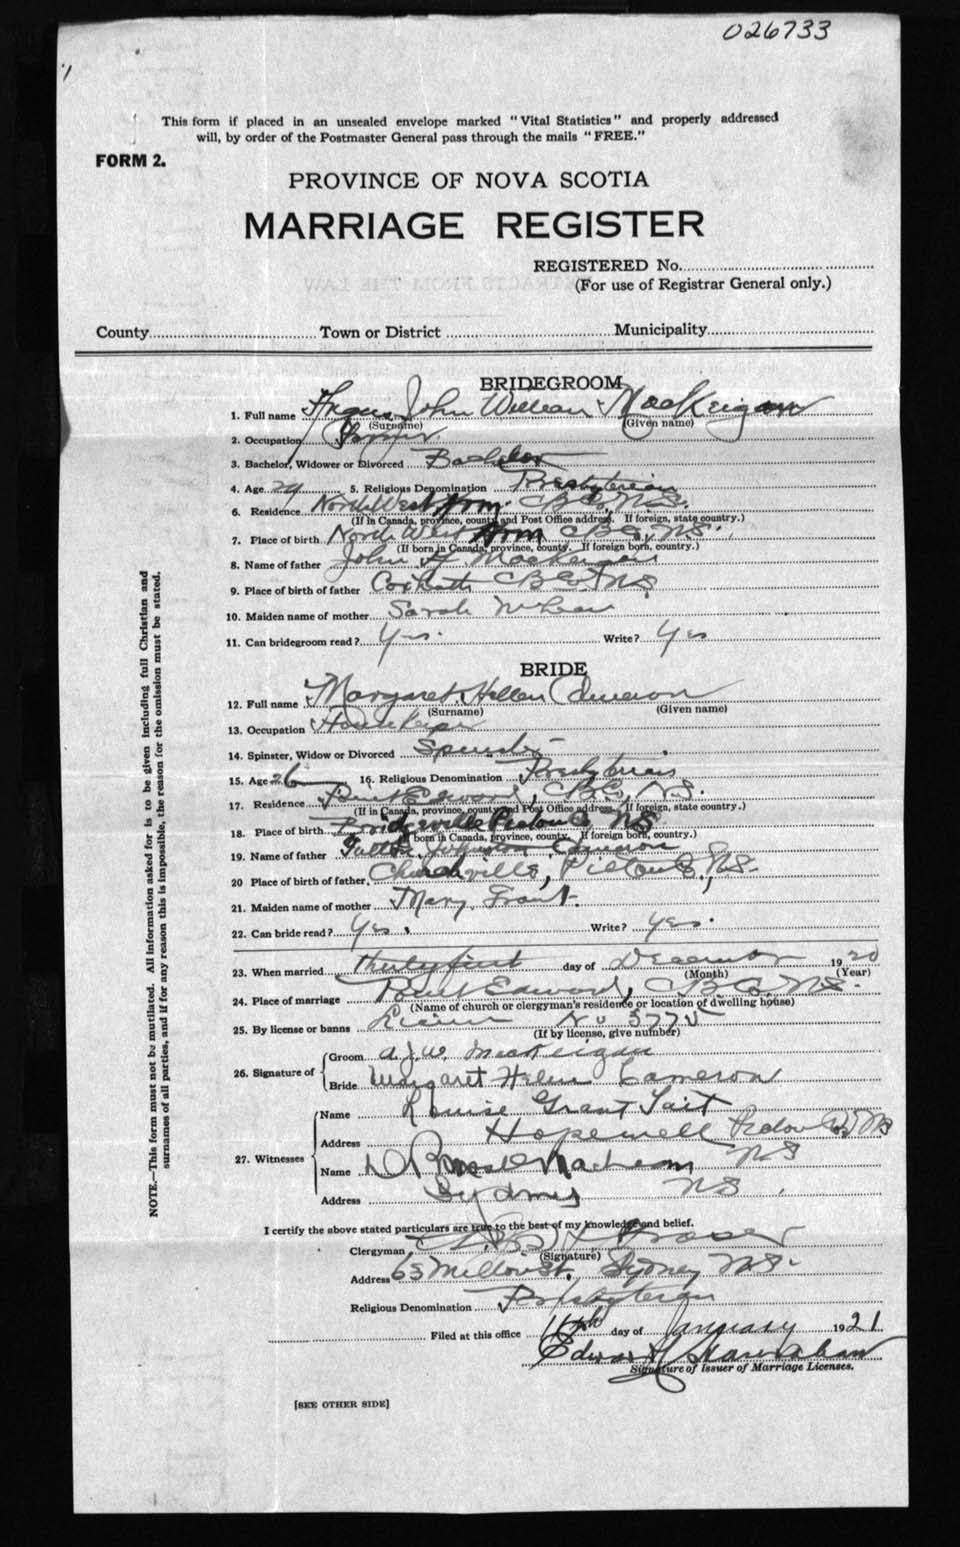 026733
This form if placed in an unsealed envelope marked "Vital Statistics" and properly addressed
will, by order of the Postmaster General pass through the mails "FREE."
FORM 2.
PROVINCE OF NOVA SCOTIA
MARRIAGE REGISTER
REGISTERED No.
(For use of Registrar General only.)
County Town or District Municipality
BRIDEGROOM
1. Full name Angus John William MacKeigan
(Surname) (Given name)
2. Occupation Farmer
3. Bachelor, Widower or Divorced Bachelor
4. Age 29 5. Religious Denomination Presbyterian
6. Residence North West Arm C.B. Co. N.S.
(If in Canada, province, county and Post Office address. If foreign, state country.)
7. Place of birth North West Arm C.B. Co. N.S.
(If born in Canada, province, county. If foreign born, country.)
8. Name of father John MacKeigan
9. Place of birth of father Coxheath C.B. Co. N.S.
10. Maiden name of mother Sarah McLean
11. Can bridegroom read? Yes. Write? Yes
BRIDE
12. Full name Margaret Hellen Cameron
(Surname) (Given name)
13. Occupation Housekeeper
14. Spinster, Widow or Divorced Spinster
15. Age 26 16. Religious Denomination Presbyterian
17. Residence Point Edward, C.B. Co, N.S.
(If in Canada, province, county and Post Office address. If foreign, state country.)
18. Place of birth Bridgeville Pictou Co, NS
(If born in Canada, province, county. If foreign born, country.)
19. Name of father Cameron
20 Place of birth of father, Churchville, Pictou Co, N.S.
21. Maiden name of mother Mary Grant
22. Can bride read? Yes Write? Yes.
23. When married thirty first day of December 1920
(Month) (Year)
24. Place of marriage Point Edward, C.B. Co. N.S.
(Name of church or clergyman's residence or location of dwelling house)
25. By license or banns License No 5775
(If by license, give number)
26. Signature of Groom A.J.W. MacKeigan
Bride Margaret Helen Cameron
27. Witnesses Name Louise Grant Tait
Address Hopewell Pictou Co NS
Name NS
Address Sydney NS
I certify the above stated particulars are true to the best of my knowledge and belief.
Clergyman Fraser
(Signature)
Address 65 St. Sydney N.S.
Religious Denomination Presbyterian
Filed at this office 11th day of January 1921
Edward
Signature of Issuer of Marriage Licenses.
[SEE OTHER SIDE]
NOTE.—This form must not be mutilated. All information asked for is to be given including full Christian and
surnames of all parties, and if for any reason this is impossible, the reason for the omission must be stated.